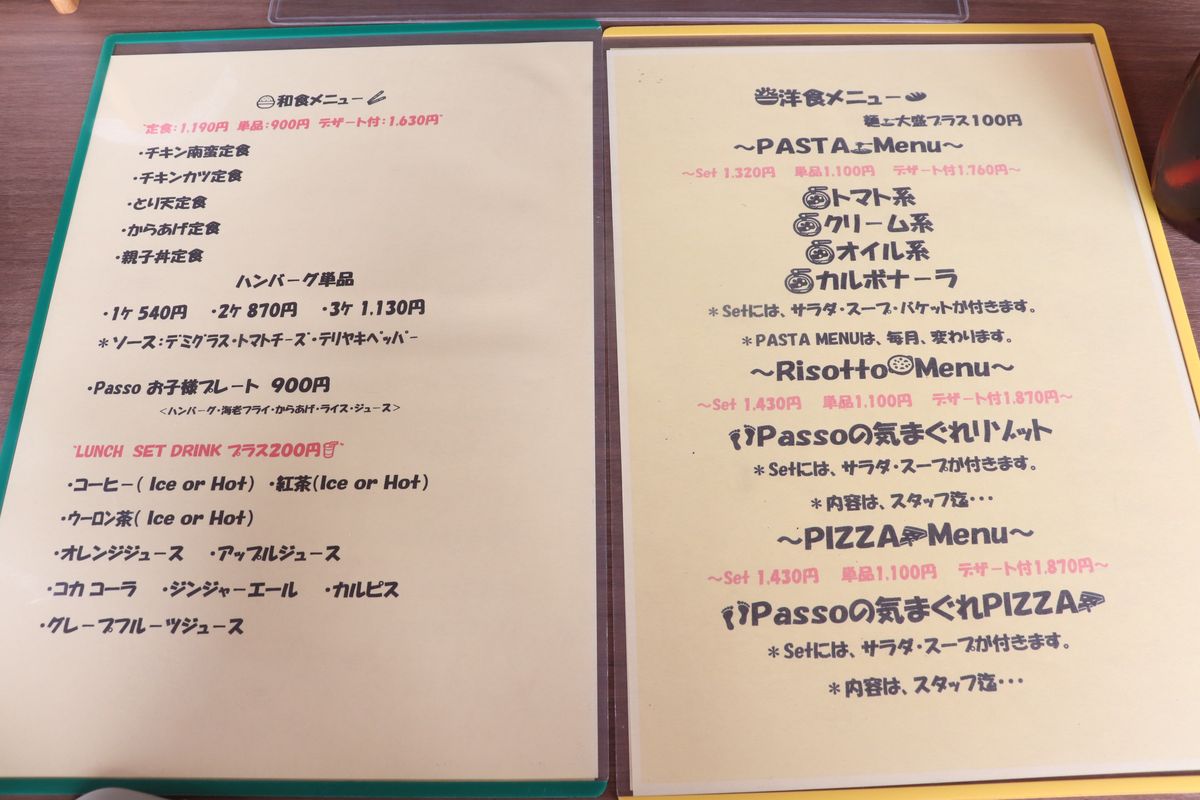 和食メニュー
"定食:1.190円 単品:900円 デザート付:1.630円"
・チキン南蛮定食
・チキンカツ定食
・とり天定食
・からあげ定食
・親子丼定食
ハンバーグ単品
・1ケ 540円 ・2ケ 870円 ・3ケ 1.130円
＊ソース:デミグラス・トマトチーズ・テリヤキペッパー
・Passo お子様プレート 900円
<ハンバーグ・海老フライ・からあげ・ライス・ジュース>
"LUNCH SET DRINK プラス200円"
・コーヒー( Ice or Hot) ・紅茶(Ice or Hot)
・ウーロン茶( Ice or Hot)
・オレンジジュース ・アップルジュース
・コカ コーラ ・ジンジャーエール ・カルピス
・グレープフルーツジュース
洋食メニュー
麺大盛プラス100円
～PASTA Menu～
～Set 1.320円 単品1.100円 デザート付1.760円～
トマト系
クリーム系
オイル系
カルボナーラ
＊Setには、サラダ・スープ・バケットが付きます。
＊PASTA MENUは、毎月、変わります。
～Risotto Menu～
～Set 1.430円 単品1.100円 デザート付1.870円～
Passoの気まぐれリゾット
＊Setには、サラダ・スープが付きます。
＊内容は、スタッフ迄・・・
～PIZZA Menu～
～Set 1.430円 単品1.100円 デザート付1.870円～
Passoの気まぐれPIZZA
＊Setには、サラダ・スープが付きます。
＊内容は、スタッフ迄・・・